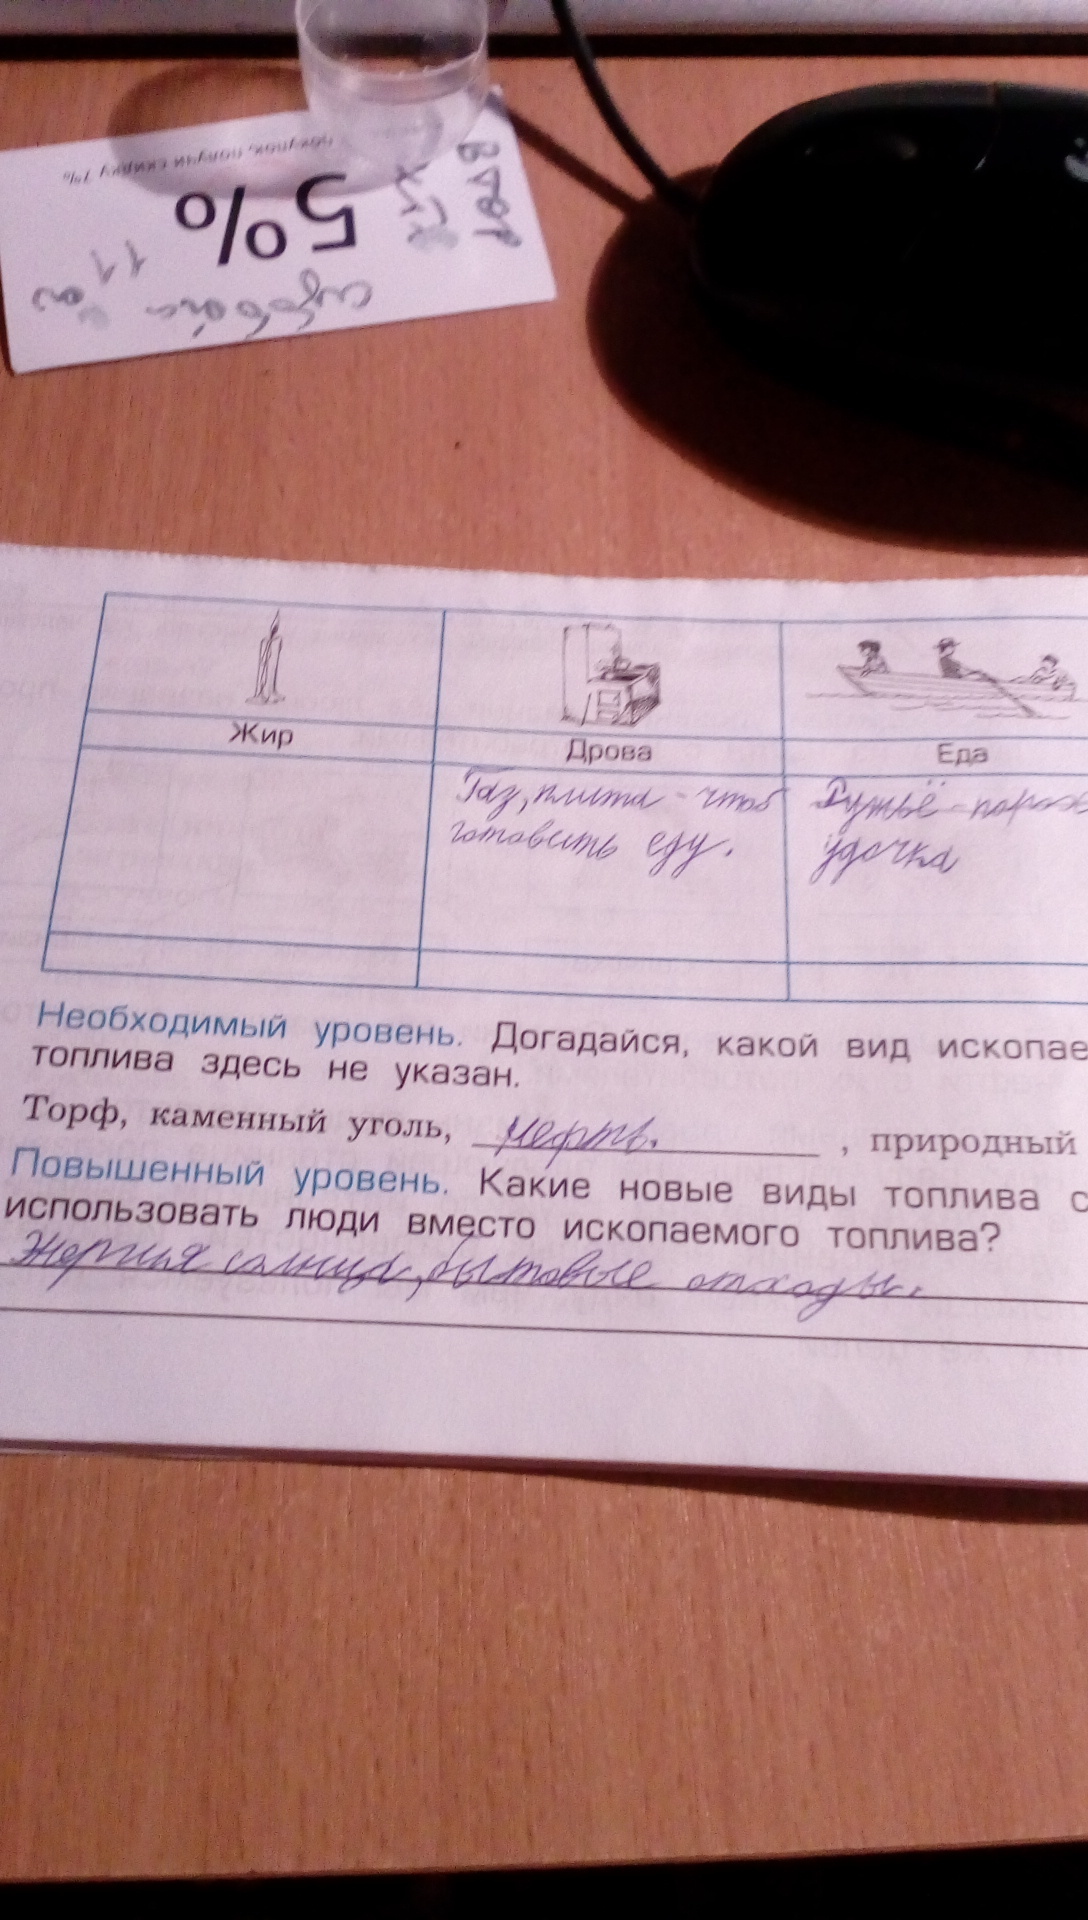 покупок, получи скидку 7%
5%
11
Жир
Дрова
Еда
Газ, плита - чтоб
готовить еду.
Ружьё - порох
удочка
Необходимый уровень. Догадайся, какой вид ископае
топлива здесь не указан.
Торф, каменный уголь, нефть. , природный
Повышенный уровень. Какие новые виды топлива с
использовать люди вместо ископаемого топлива?
Энергия солнца, бытовые отходы.